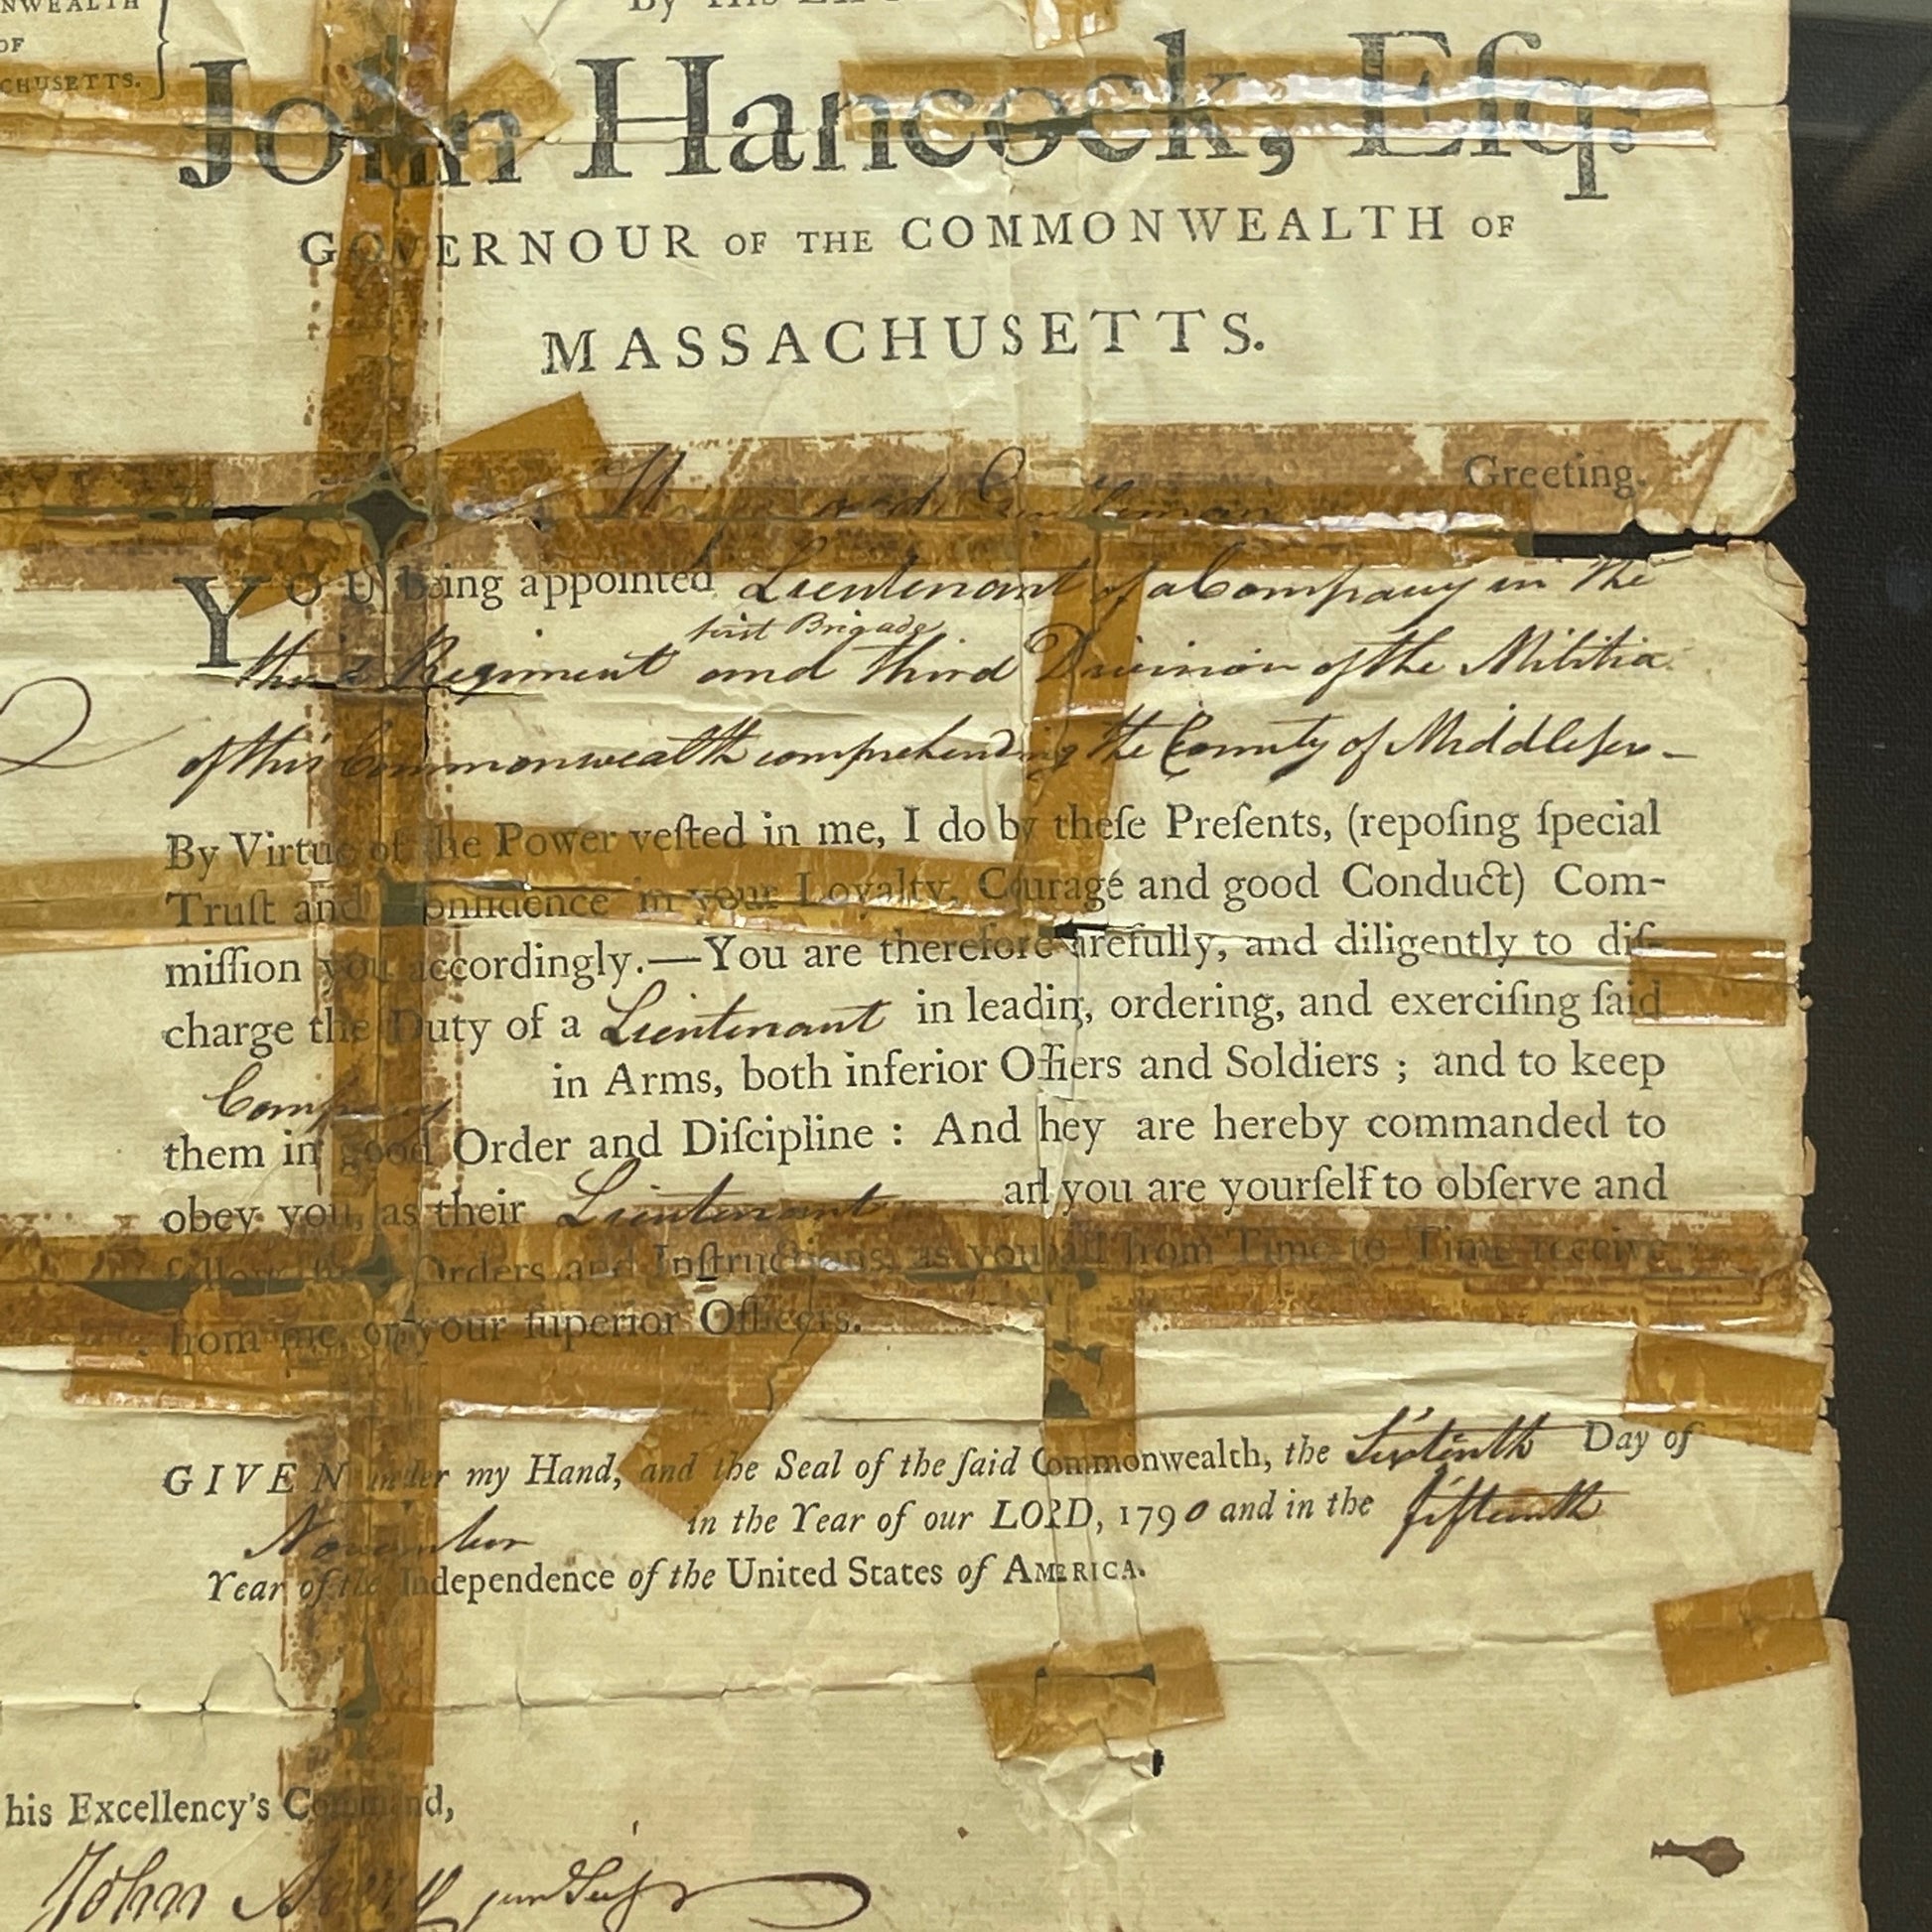 NWEALTH
OF
CHUSETTS.
By His
John Hancock, Eſq.
GOVERNOUR OF THE COMMONWEALTH OF
MASSACHUSETTS.
and Gentleman Greeting.
YOU being appointed Lieutenant of a Company in the
first Brigade
Regiment and third Division of the Militia
of this Commonwealth comprehending the County of Middlesex
By Virtue of the Power veſted in me, I do by theſe Preſents, (repoſing ſpecial
Truſt and onfidence in your Loyalty, Courage and good Conduct) Com-
miſſion you accordingly.—You are therefore arefully, and diligently to diſ-
charge the Duty of a Lieutenant in leadin, ordering, and exerciſing ſaid
Company in Arms, both inferior Offiers and Soldiers ; and to keep
them in good Order and Diſcipline : And hey are hereby commanded to
obey you, as their Lieutenant ad you are yourſelf to obſerve and
follow Orders and Inſtructions, as you all from Time to Time receive
from me, or your ſuperior Officers.
GIVEN under my Hand, and the Seal of the ſaid Commonwealth, the Sixteenth Day of
November in the Year of our LORD, 1790 and in the fifteenth
Year of the Independence of the United States of AMERICA.
his Excellency's Command,
John Avery jun Secy